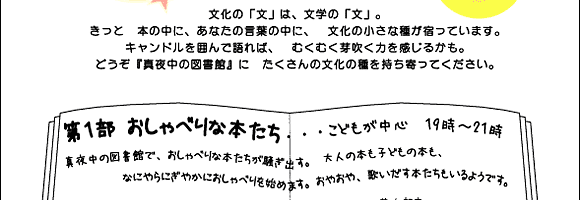 文化の「文」は、文学の「文」。
きっと　本の中に、あなたの言葉の中に、　文化の小さな種が宿っています。
キャンドルを囲んで語れば、　むくむく芽吹く力を感じるかも。
どうぞ『真夜中の図書館』に　たくさんの文化の種を持ち寄ってください。
第1部 おしゃべりな本たち．．．こどもが中心　19時～21時
真夜中の図書館で、おしゃべりな本たちが騒ぎ出す。　大人の本も子どもの本も、
なにやらにぎやかにおしゃべりを始めます。おやおや、歌いだす本たちもいるようです。